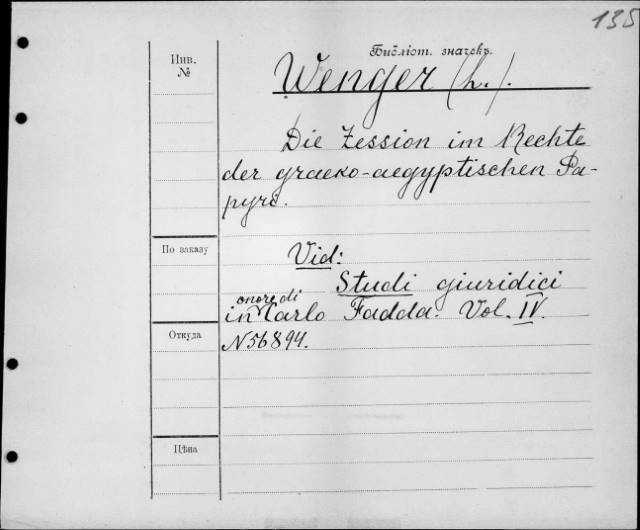 135
Библіот. значекъ.
Инв.
№
Wenger (L.).
Die Zession im Rechte
der graeko-aegyptischen Pa-
pyri.
По заказу
Vid:
Studi giuridici
onore di
in Carlo Fadda. Vol. IV.
Откуда
N 56894.
Цѣна